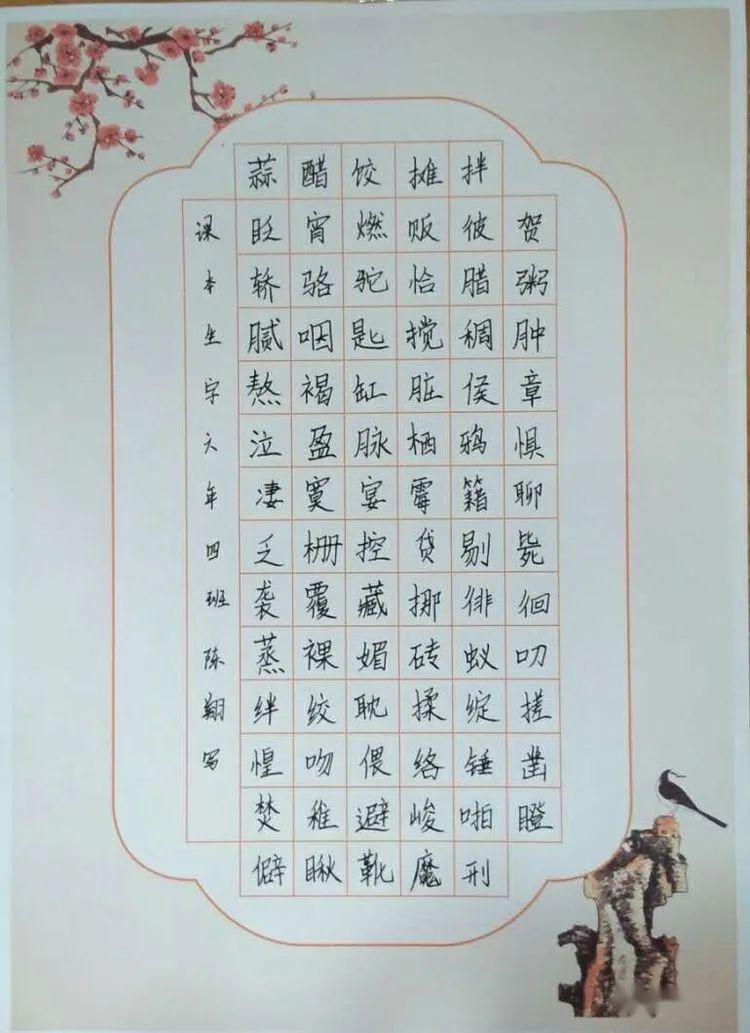 蒜醋饺摊拌
眨宵燃贩彼贺
轿骆驼恰腊粥
腻咽匙搅稠肿
熬褐缸脏侯章
泣盈脉栖鸦惧
凄寞宴霉籍聊
乏栅控贷剔毙
袭覆藏挪徘徊
蒸裸媚砖蚁叨
绊绞耽揉绽搓
惶吻偎络锤凿
焚稚避峻啪瞪
僻瞅靴魔刑
课本生字六年四班陈翔写